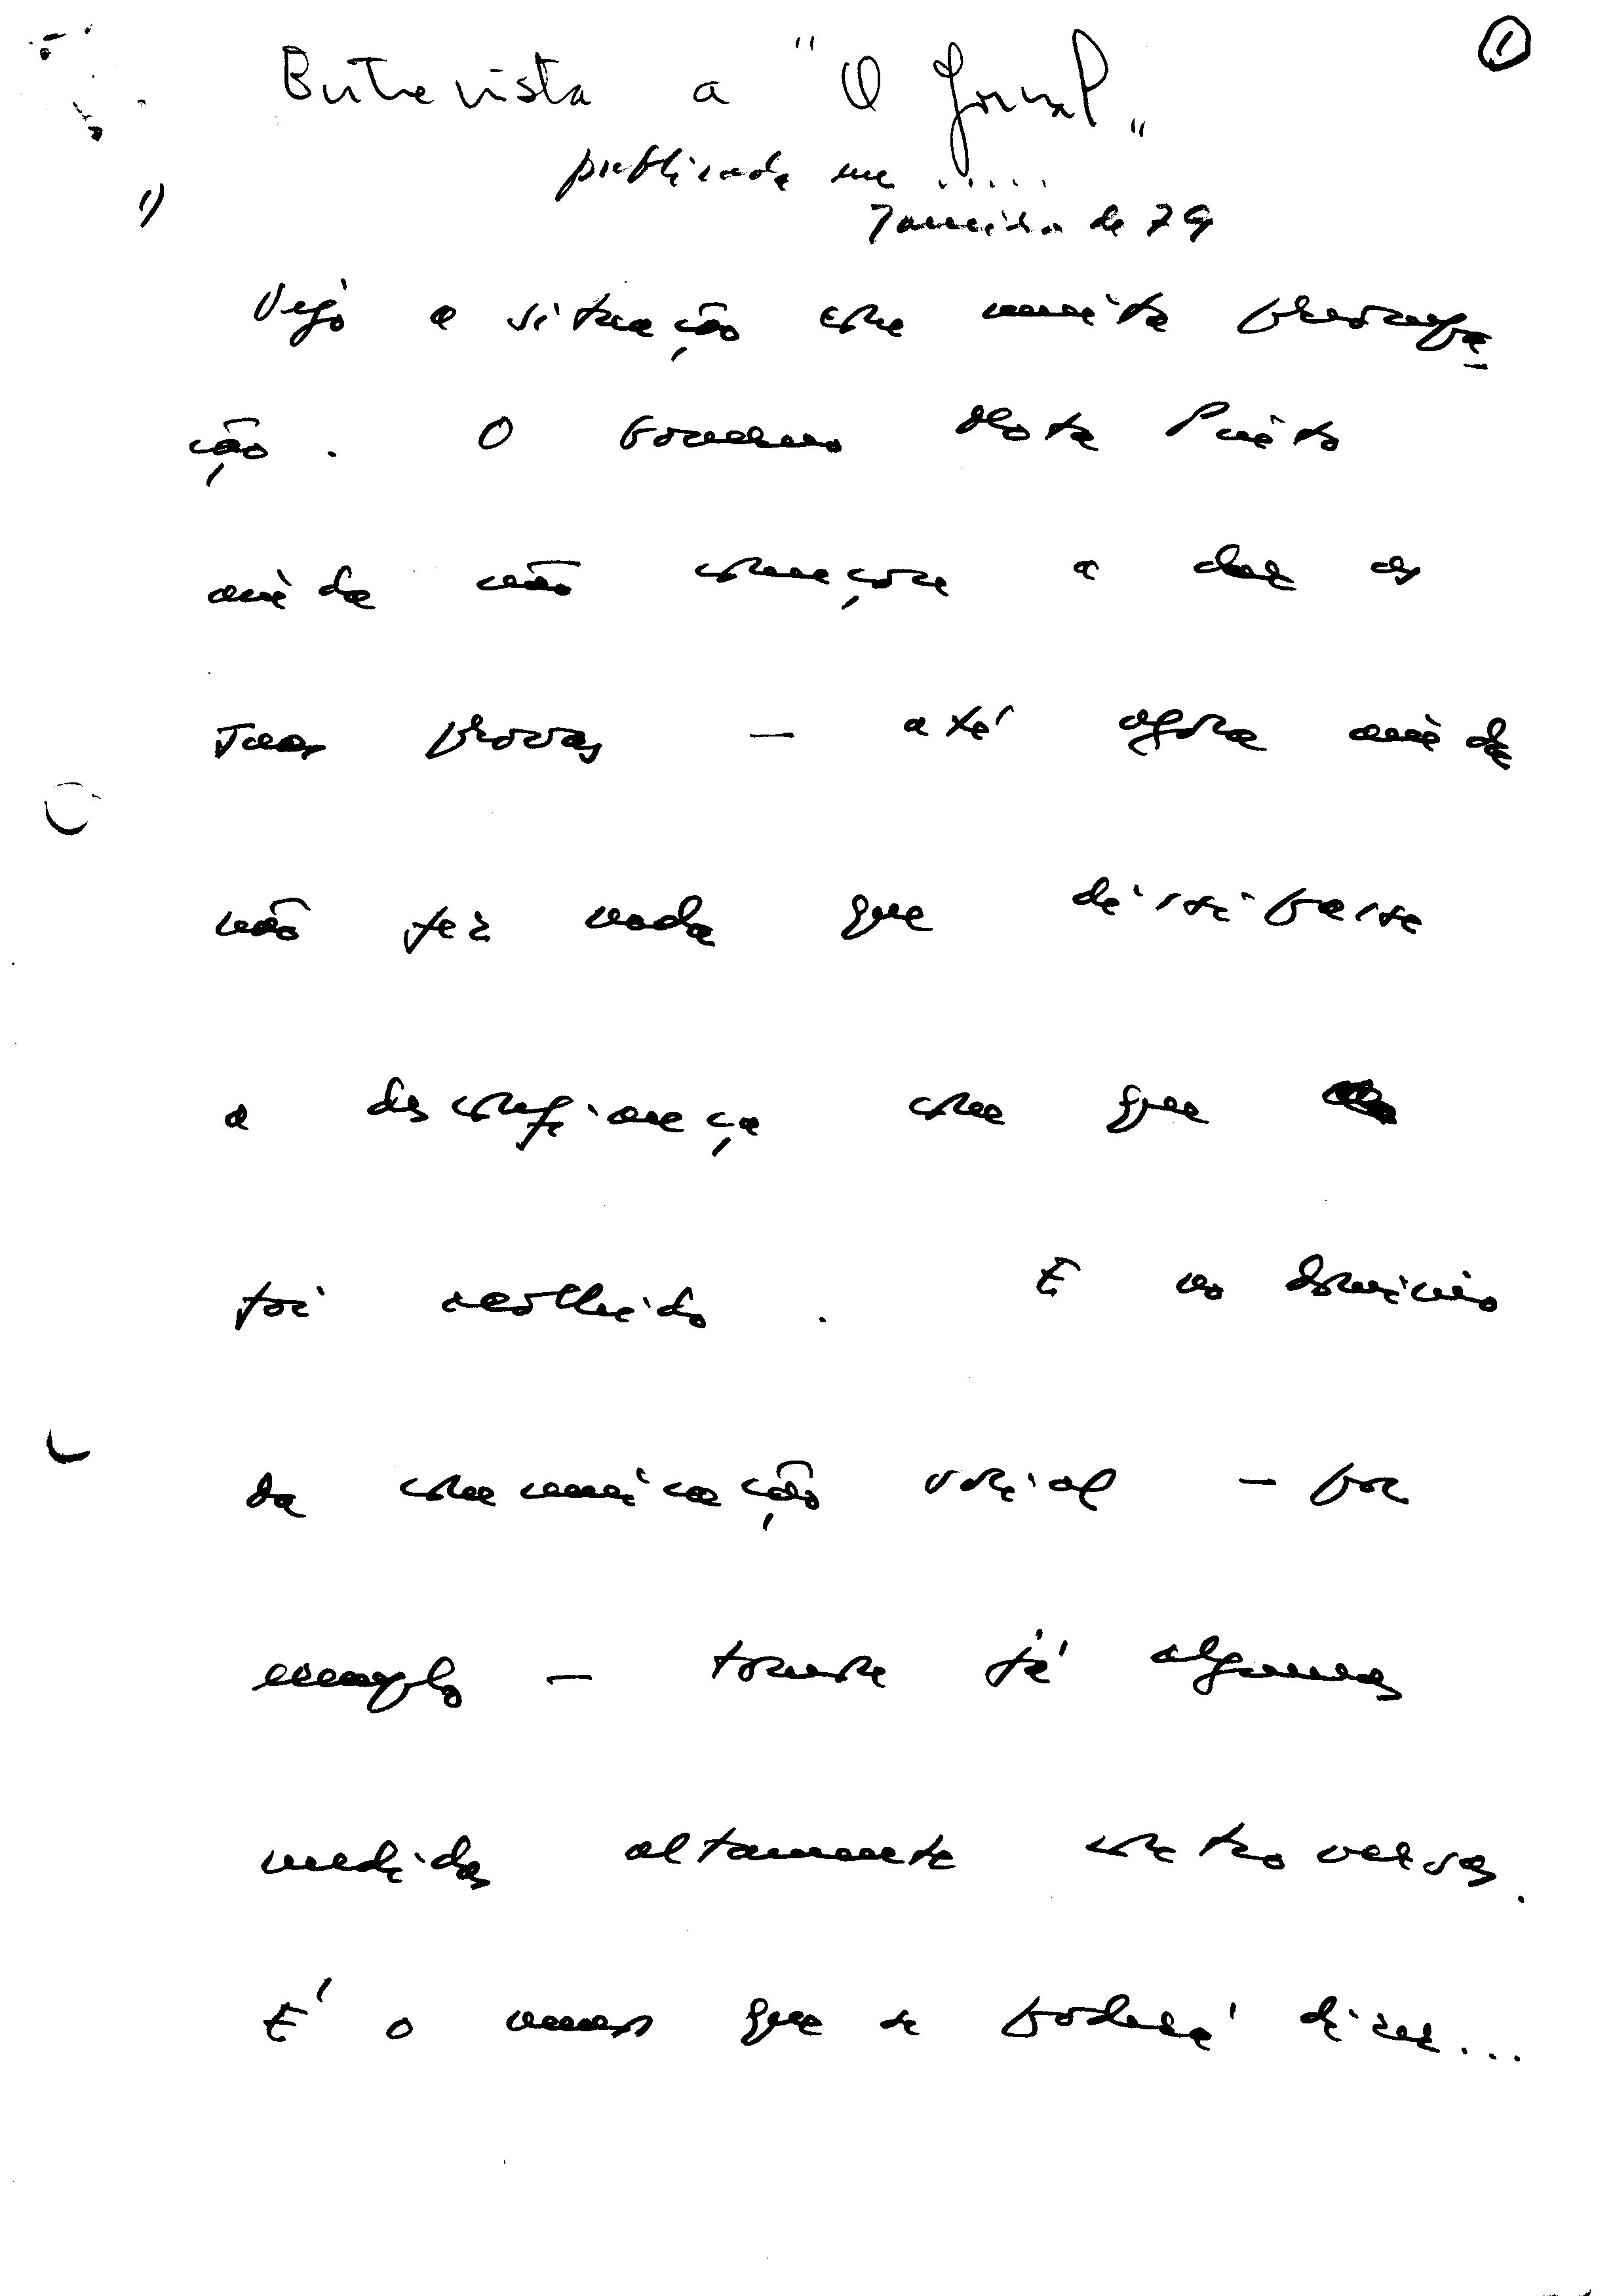 ①
Entrevista a "O Jornal"
publicada em .....
Janeiro de 79
1)
Vejo a situação com muita preocupa-
ção. O Governo Mota Pinto
ainda não começou a dar as
suas provas — até agora ainda
não fez nada que dissipasse
a desconfiança com que
foi acolhido. E no domínio
da comunicação social — por
exemplo — tomou já algumas
medidas altamente controversas.
É o menos que se poderá dizer...